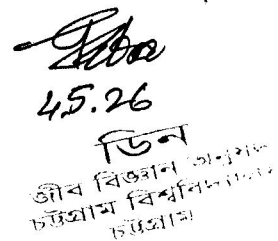 4.5.26
ডিন
জীব বিজ্ঞান অনুষদ
চট্টগ্রাম বিশ্ববিদ্যালয়
চট্টগ্রাম।